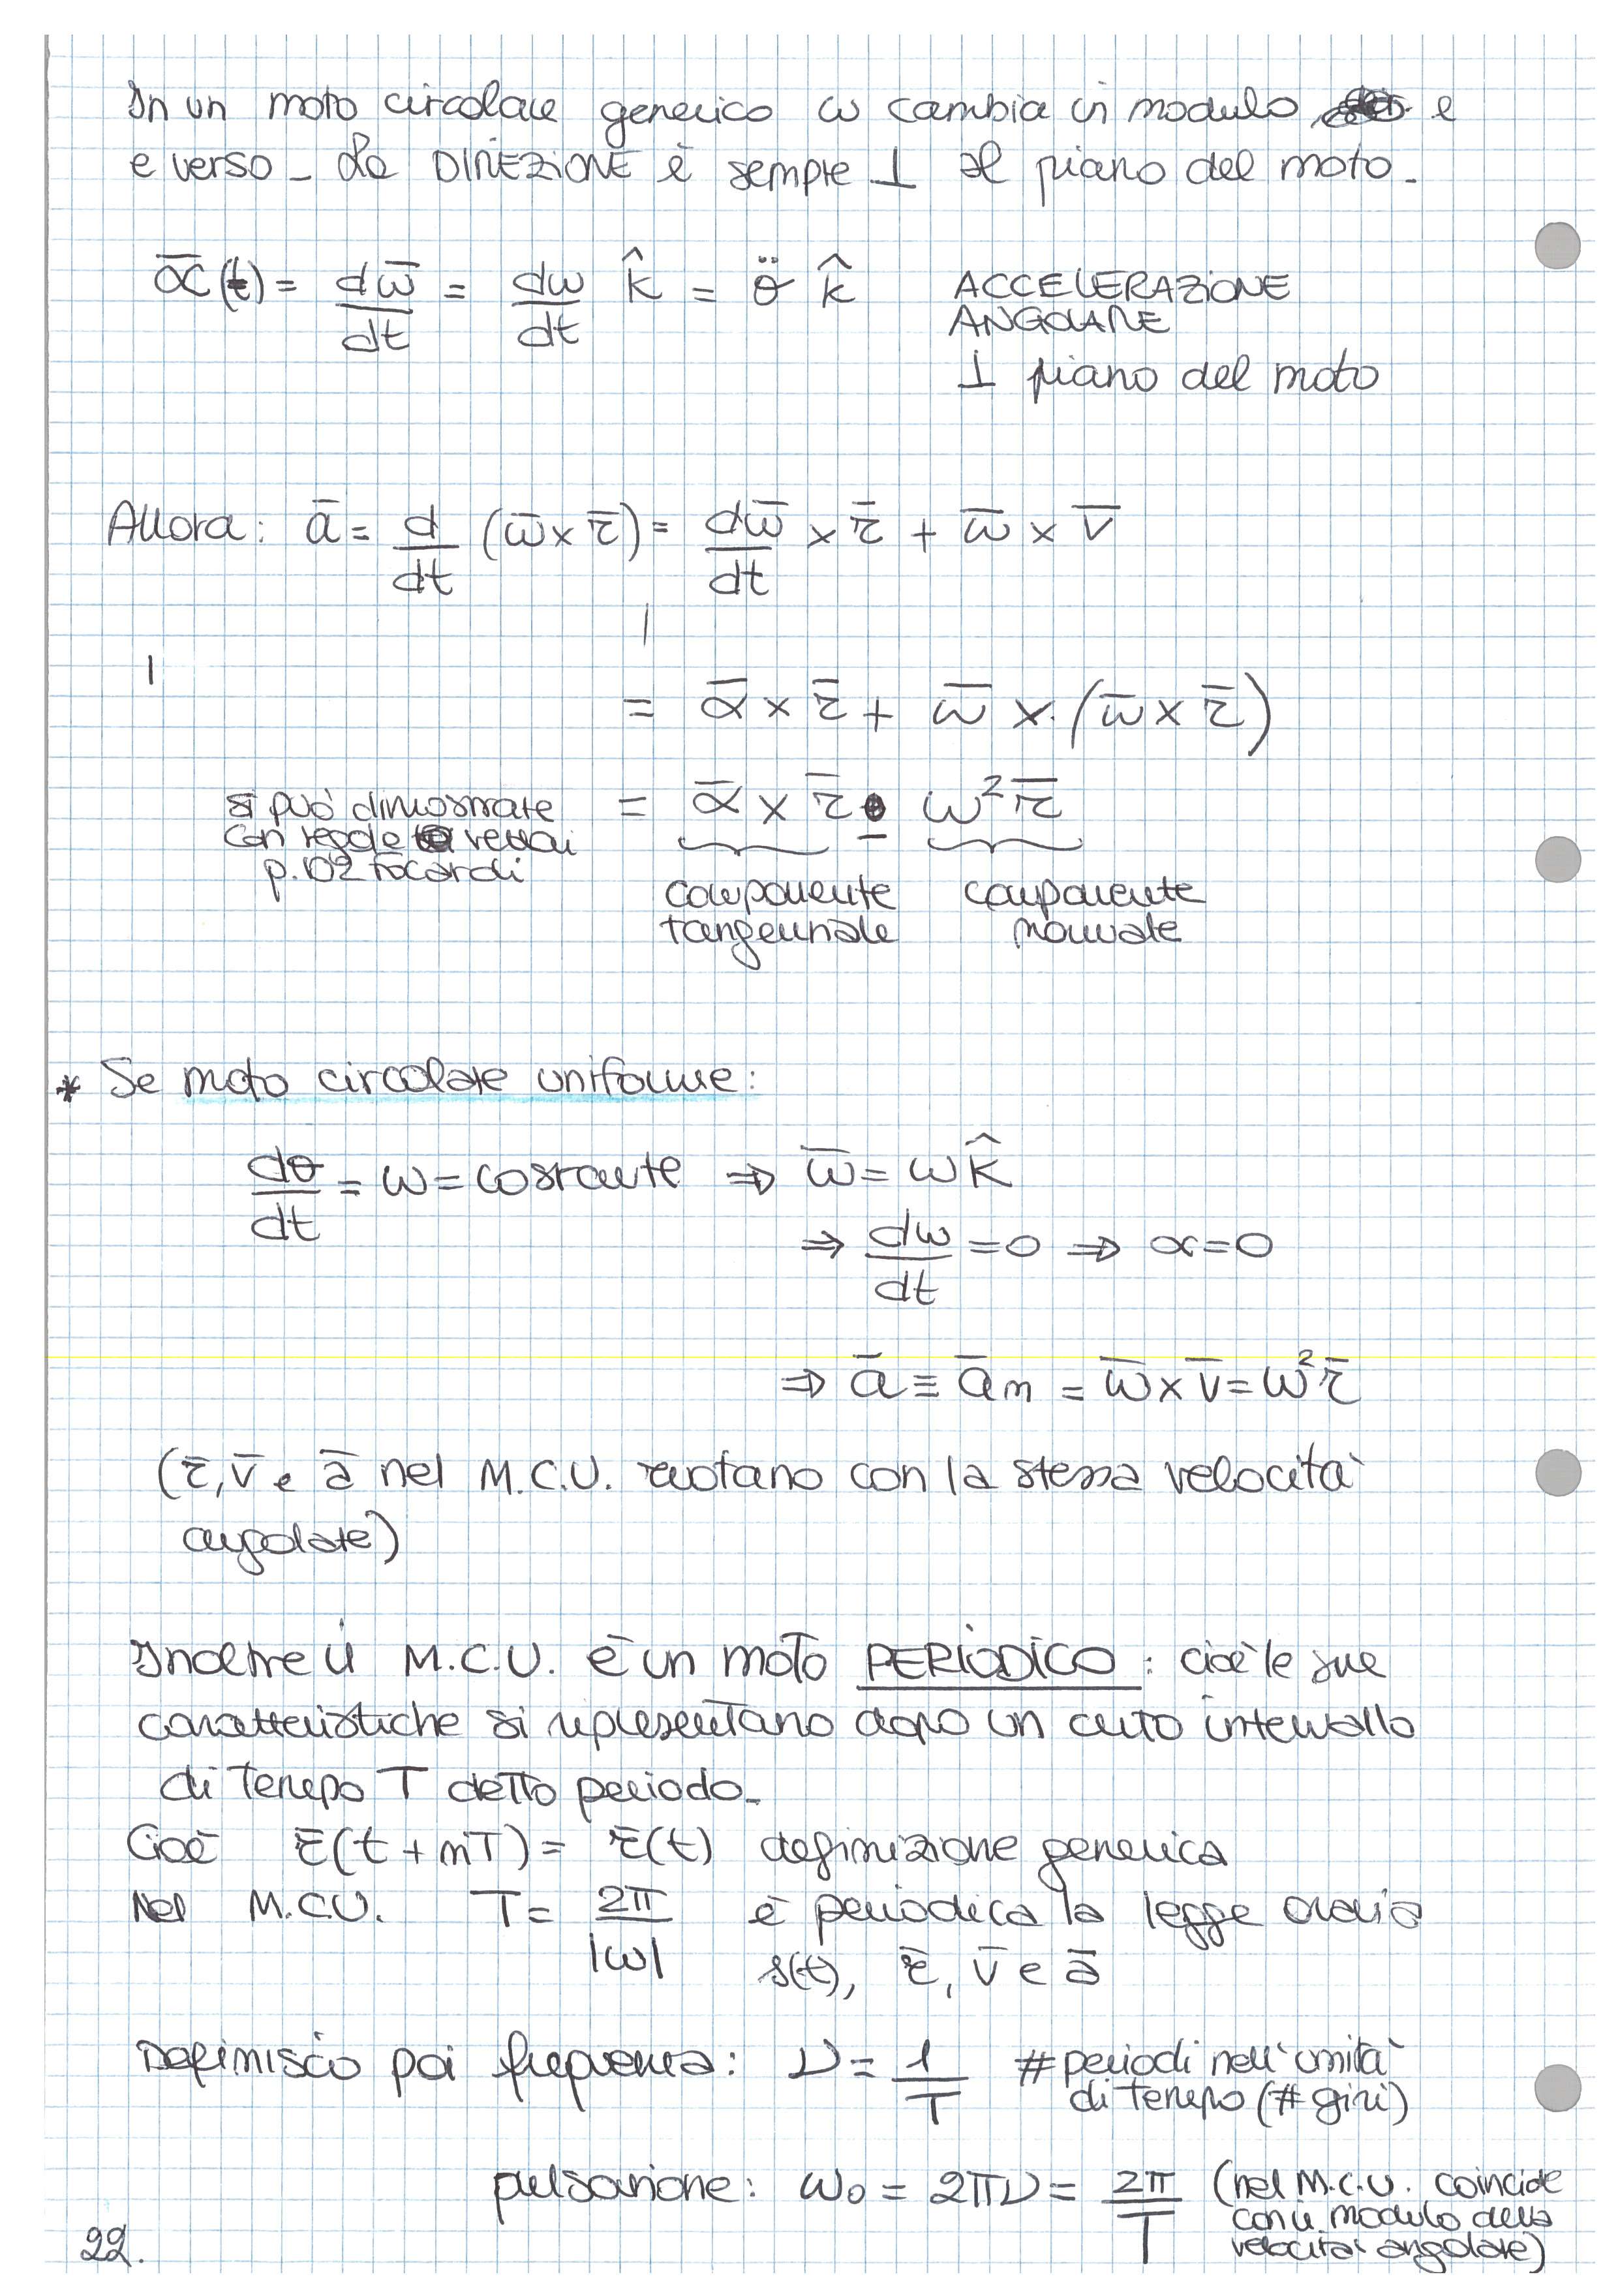 In un moto circolare generico ω cambia in modulo e
e verso _ La DIREZIONE è sempre ⊥ al piano del moto.
ᾱ(t) = dω̄/dt = dω/dt k̂ = θ̈ k̂ ACCELERAZIONE
ANGOLARE
⊥ piano del moto
Allora: ā = d/dt (ω̄ × r̄) = dω̄/dt × r̄ + ω̄ × v̄
= ᾱ × r̄ + ω̄ × (ω̄ × r̄)
si può dimostrare
con regole vettori
p.102 Focardi
= ᾱ × r̄ - ω² r̄
componente
tangenziale
componente
normale
* Se moto circolare uniforme:
dθ/dt = ω = costante ⇒ ω̄ = ω k̂
⇒ dω/dt = 0 ⇒ α = 0
⇒ ā ≡ ān = ω̄ × v̄ = ω² r̄
(r̄, v̄ e ā nel M.C.U. ruotano con la stessa velocità
angolare)
Inoltre il M.C.U. è un moto PERIODICO : cioè le sue
caratteristiche si ripresentano dopo un certo intervallo
di tempo T detto periodo_
Cioè r̄(t + nT) = r̄(t) definizione generica
Nel M.C.U. T = 2π/|ω| è periodica la legge oraria
s(t), r̄, v̄ e ā
Definisco poi frequenza: ν = 1/T # periodi nell'unità
di tempo (# giri)
pulsazione: ω₀ = 2πν = 2π/T (nel M.C.U. coincide
con il modulo della
velocità angolare)
22.